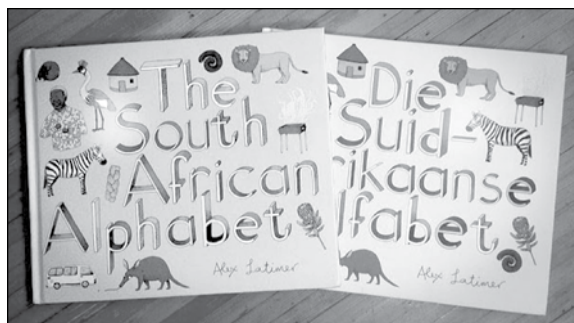 The
South
African
Alphabet
Alex Latimer
Die
Suid-
rikaanse
lfabet
Alex Latimer